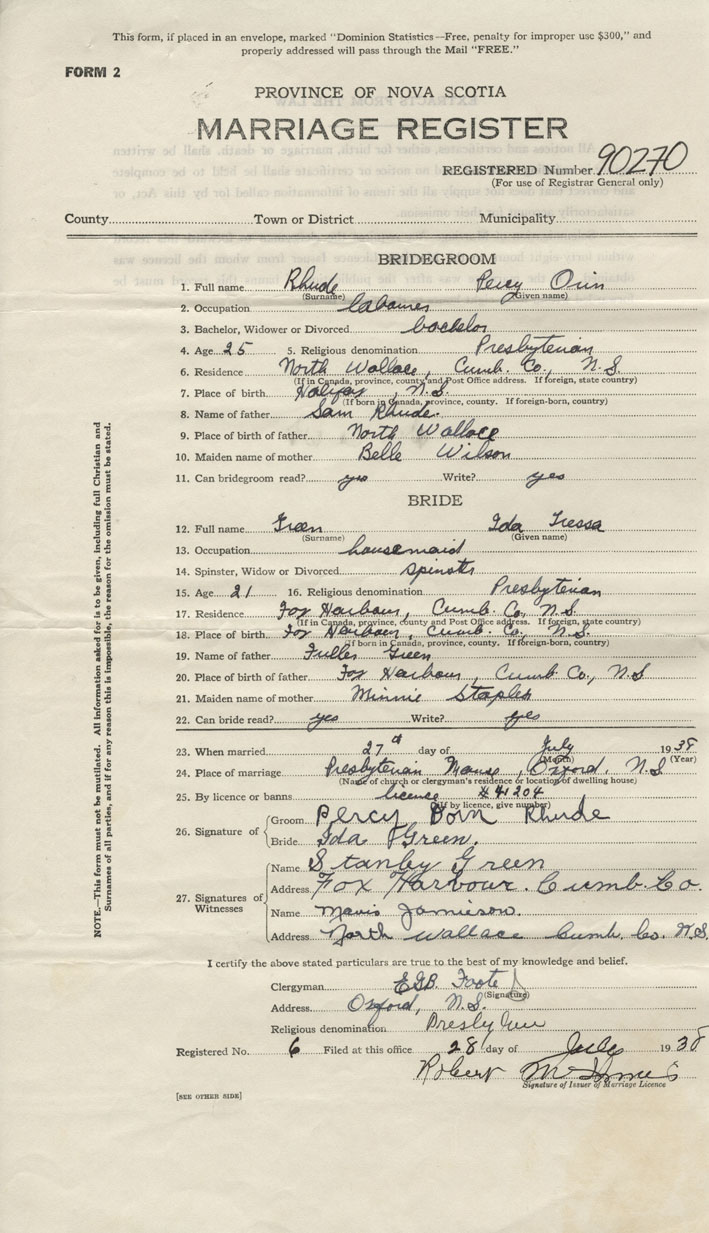 This form, if placed in an envelope, marked "Dominion Statistics—Free, penalty for improper use $300," and
properly addressed will pass through the Mail "FREE."
FORM 2
PROVINCE OF NOVA SCOTIA
MARRIAGE REGISTER
REGISTERED Number 90270
(For use of Registrar General only)
County Town or District Municipality
BRIDEGROOM
1. Full name Rhude Percy Orin
(Surname) (Given name)
2. Occupation labourer
3. Bachelor, Widower or Divorced bachelor
4. Age 25 5. Religious denomination Presbyterian
6. Residence North Wallace, Cumb. Co., N.S.
(If in Canada, province, county and Post Office address. If foreign, state country)
7. Place of birth Halifax, N.S.
(If born in Canada, province, county. If foreign-born, country)
8. Name of father Sam Rhude.
9. Place of birth of father North Wallace
10. Maiden name of mother Belle Wilson
11. Can bridegroom read? yes Write? yes
BRIDE
12. Full name Green Ida Tressa
(Surname) (Given name)
13. Occupation housemaid
14. Spinster, Widow or Divorced spinster
15. Age 21 16. Religious denomination Presbyterian
17. Residence Fox Harbour, Cumb. Co., N.S.
(If in Canada, province, county and Post Office address. If foreign, state country)
18. Place of birth Fox Harbour, Cumb. Co., N.S.
(If born in Canada, province, county. If foreign-born, country)
19. Name of father Fuller Green
20. Place of birth of father Fox Harbour, Cumb. Co., N.S
21. Maiden name of mother Minnie Staples
22. Can bride read? yes Write? yes
23. When married 27th day of July 1938
(Month) (Year)
24. Place of marriage Presbyterian Manse, Oxford, N.S
(Name of church or clergyman's residence or location of dwelling house)
25. By licence or banns licence #41204
(If by licence, give number)
26. Signature of
Groom Percy Rhude
Bride Ida Green.
27. Signatures of Witnesses
Name Stanley Green
Address Fox Harbour. Cumb. Co.
Name Mavis Jamieson.
Address North Wallace Cumb. Co. N.S.
I certify the above stated particulars are true to the best of my knowledge and belief.
Clergyman Foote
(Signature)
Address Oxford, N.S.
Religious denomination Presbyterian
Registered No. 6 Filed at this office 28 day of July 1938
Robert
Signature of Issuer of Marriage Licence
[SEE OTHER SIDE]
NOTE.—This form must not be mutilated. All information asked for is to be given, including full Christian and
Surnames of all parties, and if for any reason this is impossible, the reason for the omission must be stated.